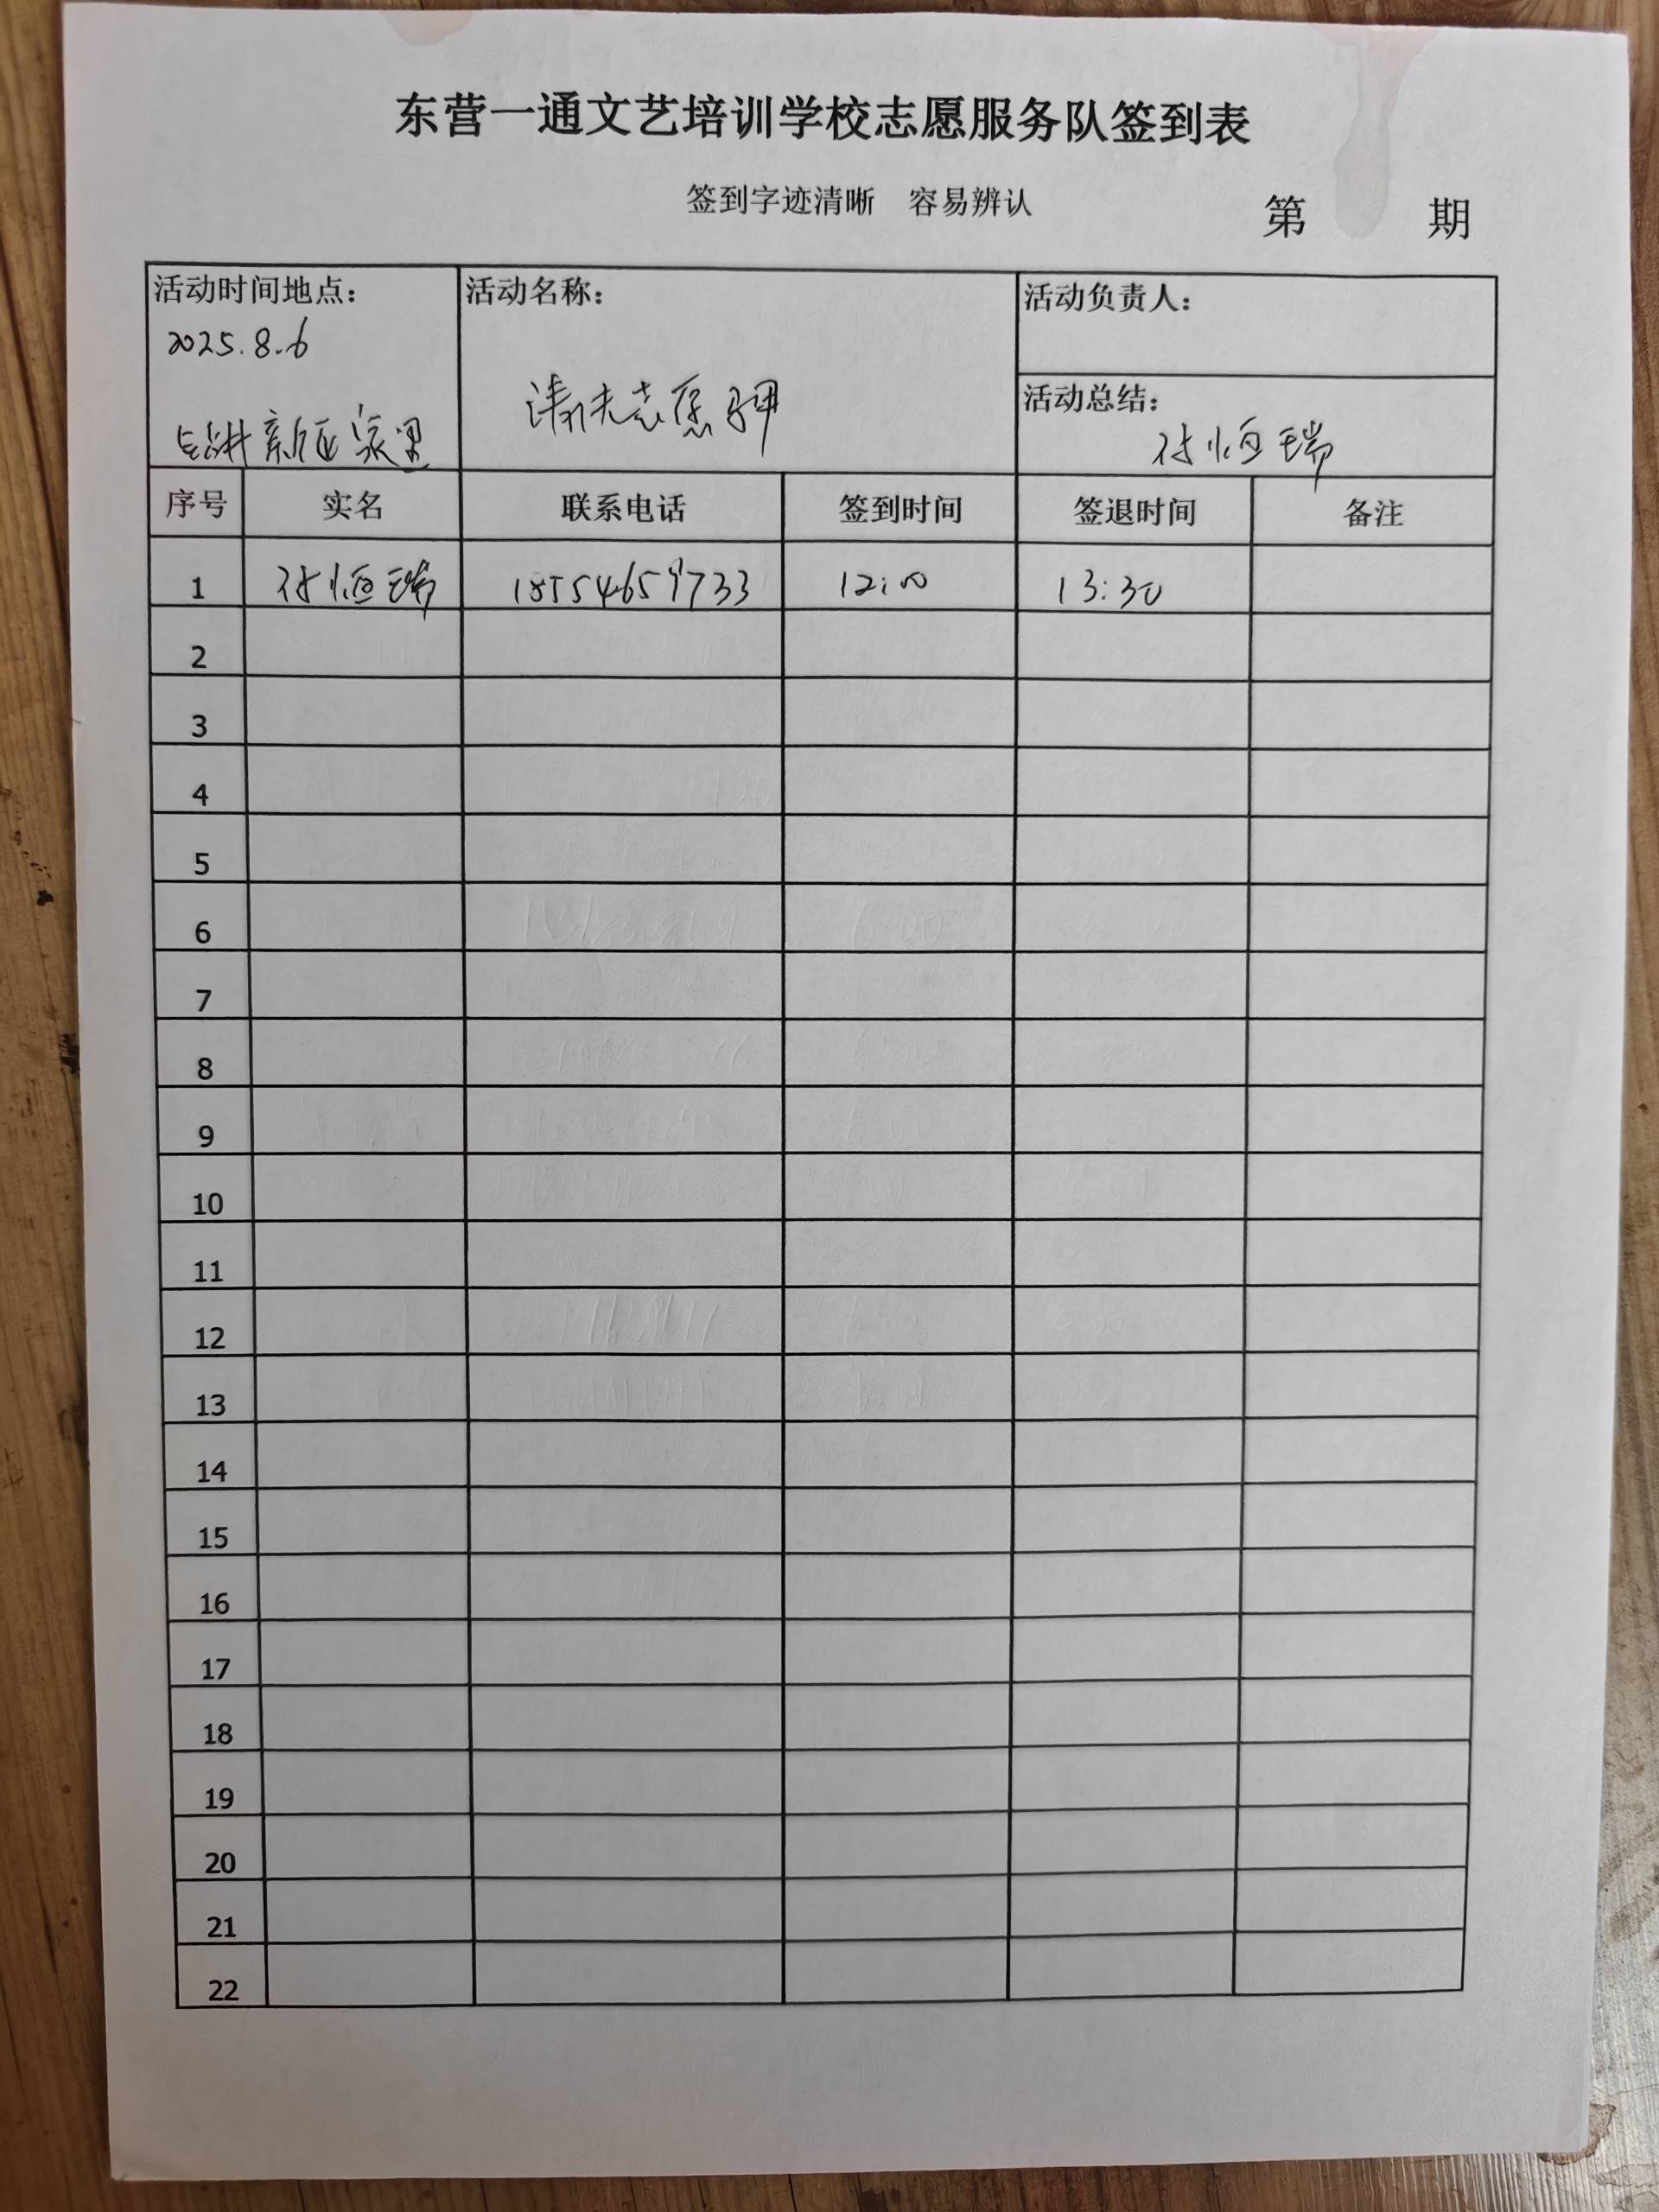 东营一通文艺培训学校志愿服务队签到表
签到字迹清晰 容易辨认
第 期
活动时间地点： 活动名称： 活动负责人：
2025.8.6
清洗志愿马甲
活动总结：
付恒瑞
新区家里
序号 实名 联系电话 签到时间 签退时间 备注
1 付恒瑞 18554659733 12:00 13:30
2
3
4
5
6
7
8
9
10
11
12
13
14
15
16
17
18
19
20
21
22